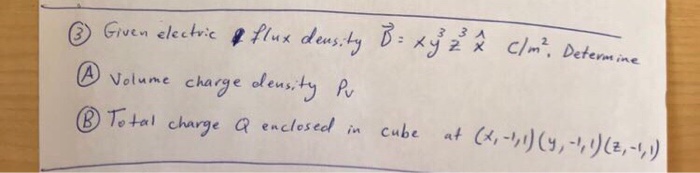 ③ Given electric flux density D⃗ = xy³z³ x̂ C/m². Determine
Ⓐ Volume charge density ρv
Ⓑ Total charge Q enclosed in cube at (x,-1,1)(y,-1,1)(z,-1,1)